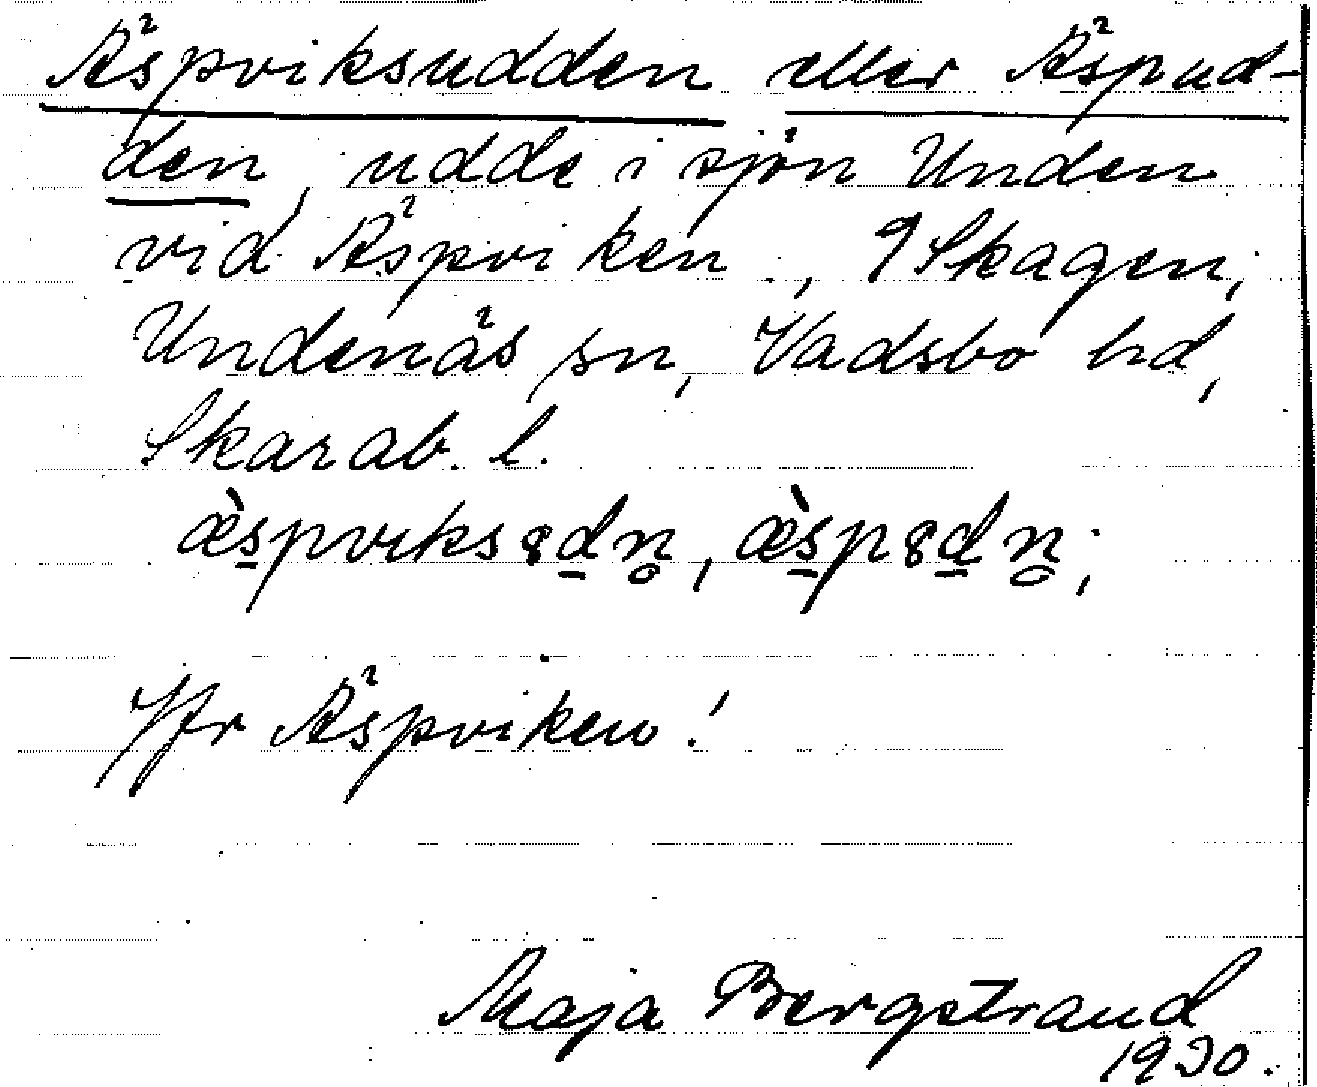 Äspviksudden eller Äspud-
den, udde i sjön Unden
vid Äspviken, 9 Skagen,
Undenäs sn, Vadsbo hd,
Skarab. l.
æ̀spviksȣdn̥, æ̀spȣdn̥;
Jfr Äspviken!
Maja Bergstrand
1930.